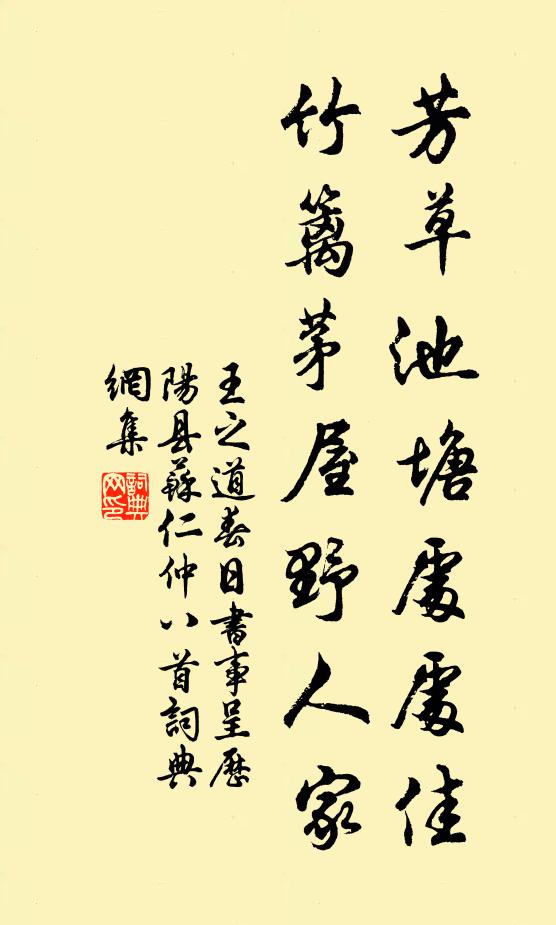 芳草池塘處處佳
竹籬茅屋野人家
王之道春日書事呈歷
陽县蘇仁仲八首詞典
網集
詞典
网印